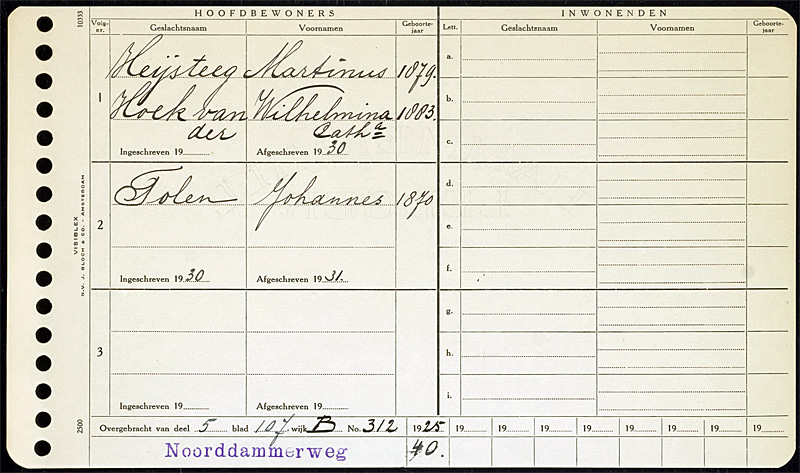 10333
HOOFDBEWONERS
INWONENDEN
Volg-nr. Geslachtsnaam Voornamen Geboorte-jaar
Lett. Geslachtsnaam Voornamen Geboorte-jaar
1 Heijsteeg Martinus 1879.
Hoek van Wilhelmina 1883.
der Catha
Ingeschreven 19 Afgeschreven 1930
2 Tolen Johannes 1870
Ingeschreven 1930 Afgeschreven 1931.
3
Ingeschreven 19 Afgeschreven 19
a.
b.
c.
d.
e.
f.
g.
h.
i.
VISIBLEX
N.V. J. BLOCH & CO. - AMSTERDAM
2500
Overgebracht van deel 5 blad 107 wijk B No. 312 1925 19 19 19 19 19 19 19 19
Noorddammerweg 40.